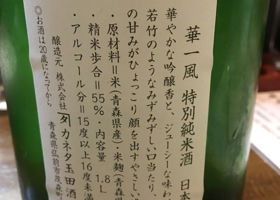 華一風 特別純米酒 日本
華やかな吟醸香と、ジューシーな味わ
若竹のようなみずみずしい口当たり、
の甘みがひょっこり顔を出すやさしい
・原材料＝米(青森県産)・米麹(青森県
・精米歩合＝55%・内容量 1.8L
・アルコール分＝15度以上16度未満
醸造元 株式会社 カネタ玉田酒
青森県弘前市茂森町
◎お酒は20歳になってから